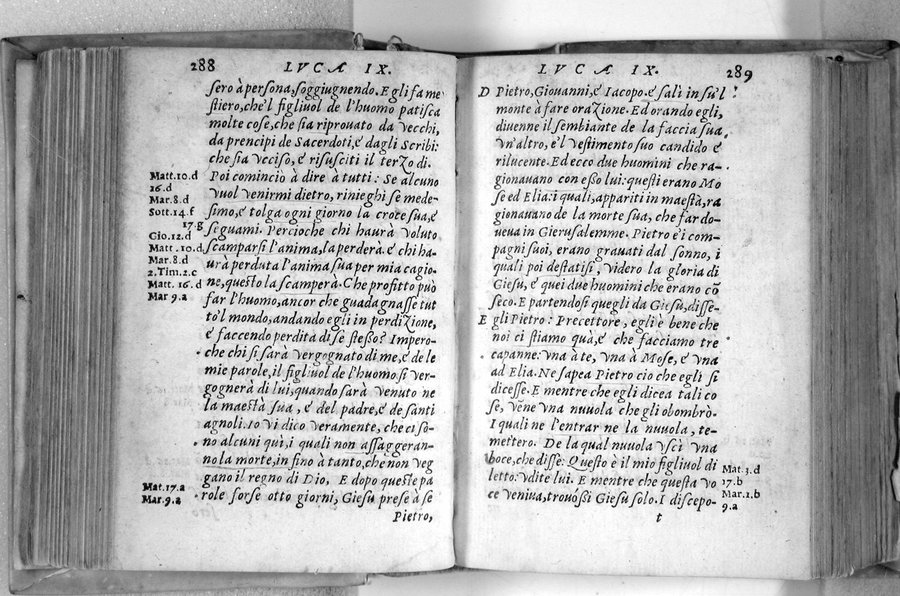 288
LVCÆ IX.
sero à persona, soggiugnendo. E gli fa me
stiero, che'l figliuol de l'huomo patisca
molte cose, che sia riprouato da vecchi,
da prencipi de Sacerdoti, e' dagli Scribi:
che sia vcciso, e' risusciti il terzo di.
Poi cominciò à dire à tutti: Se alcuno
vuol venirmi dietro, rinieghi se mede-
simo, e' tolga ogni giorno la croce sua, e'
seguami. Percioche chi haurà voluto
scamparsi l'anima, la perderà. e' chi ha-
urà perduta l'anima sua per mia cagio-
ne, questo la scamperà. Che profitto può
far l'huomo, ancor che guadagnasse tut
to'l mondo, andando egli in perdizione,
e' faccendo perdita di se stesso? Impero-
che chi si sarà vergognato di me, e' de le
mie parole, il figliuol de l'huomo si ver-
gognerà di lui, quando sarà venuto ne
la maestà sua, e' del padre, e' de santi
agnoli. Io vi dico veramente, che ci so-
no alcuni qui, i quali non assaggeran-
no la morte, in fino à tanto, che non veg
gano il regno di Dio, E dopo queste pa
role forse otto giorni, Giesu prese à se
Pietro,
Matt.10.d
16.d
Mar.8.d
Sott.14.f
17.g
Gio.12.d
Matt.10.d
Mar.8.d
2.Tim.2.c
Matt. 16.d
Mar 9.a
Mat.17.a
Mar.9.a
LVCÆ IX.
289
D Pietro, Giouanni, e' Iacopo. e' salì in su'l
monte à fare orazione. Ed orando egli,
diuenne il sembiante de la faccia sua
vn'altro, e'l vestimento suo candido e'
rilucente. Ed ecco due huomini che ra-
gionauano con esso lui: questi erano Mo
se ed Elia: i quali, appariti in maestà, ra
gionauano de la morte sua, che far do-
ueua in Gierusalemme. Pietro e'i com-
pagni suoi, erano grauati dal sonno, i
quali poi destatisi, videro la gloria di
Giesu, e' quei due huomini che erano cō
seco. E partendosi quegli da Giesu, disse-
E gli Pietro: Precettore, egli è bene che
noi ci stiamo quà, e' che facciamo tre
capanne: vna à te, vna à Mose, e' vna
ad Elia. Ne sapea Pietro cio che egli si
dicesse. E mentre che egli dicea tali co
se, vēne vna nuuola che gli obombrò.
I quali ne l'entrar ne la nuuola, te-
mettero. De la qual nuuola vscì vna
voce, che disse: Questo è il mio figliuol di
letto: vdite lui. E mentre che questa vo
ce veniua, trouossi Giesu solo. I discepo-
t
Mat.3.d
17.b
Mar.1.b
9.a